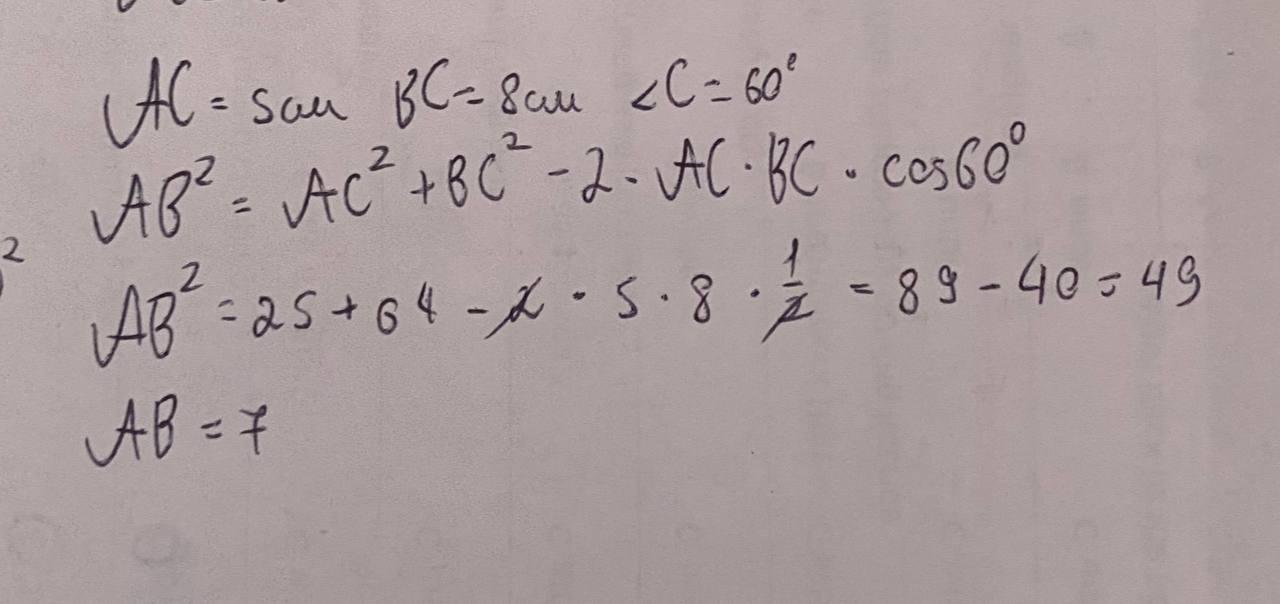 AC = 5см BC = 8см ∠C = 60°
AB² = AC² + BC² - 2 · AC · BC · cos60°
2
AB² = 25 + 64 - 2 · 5 · 8 · 1/2 = 89 - 40 = 49
AB = 7